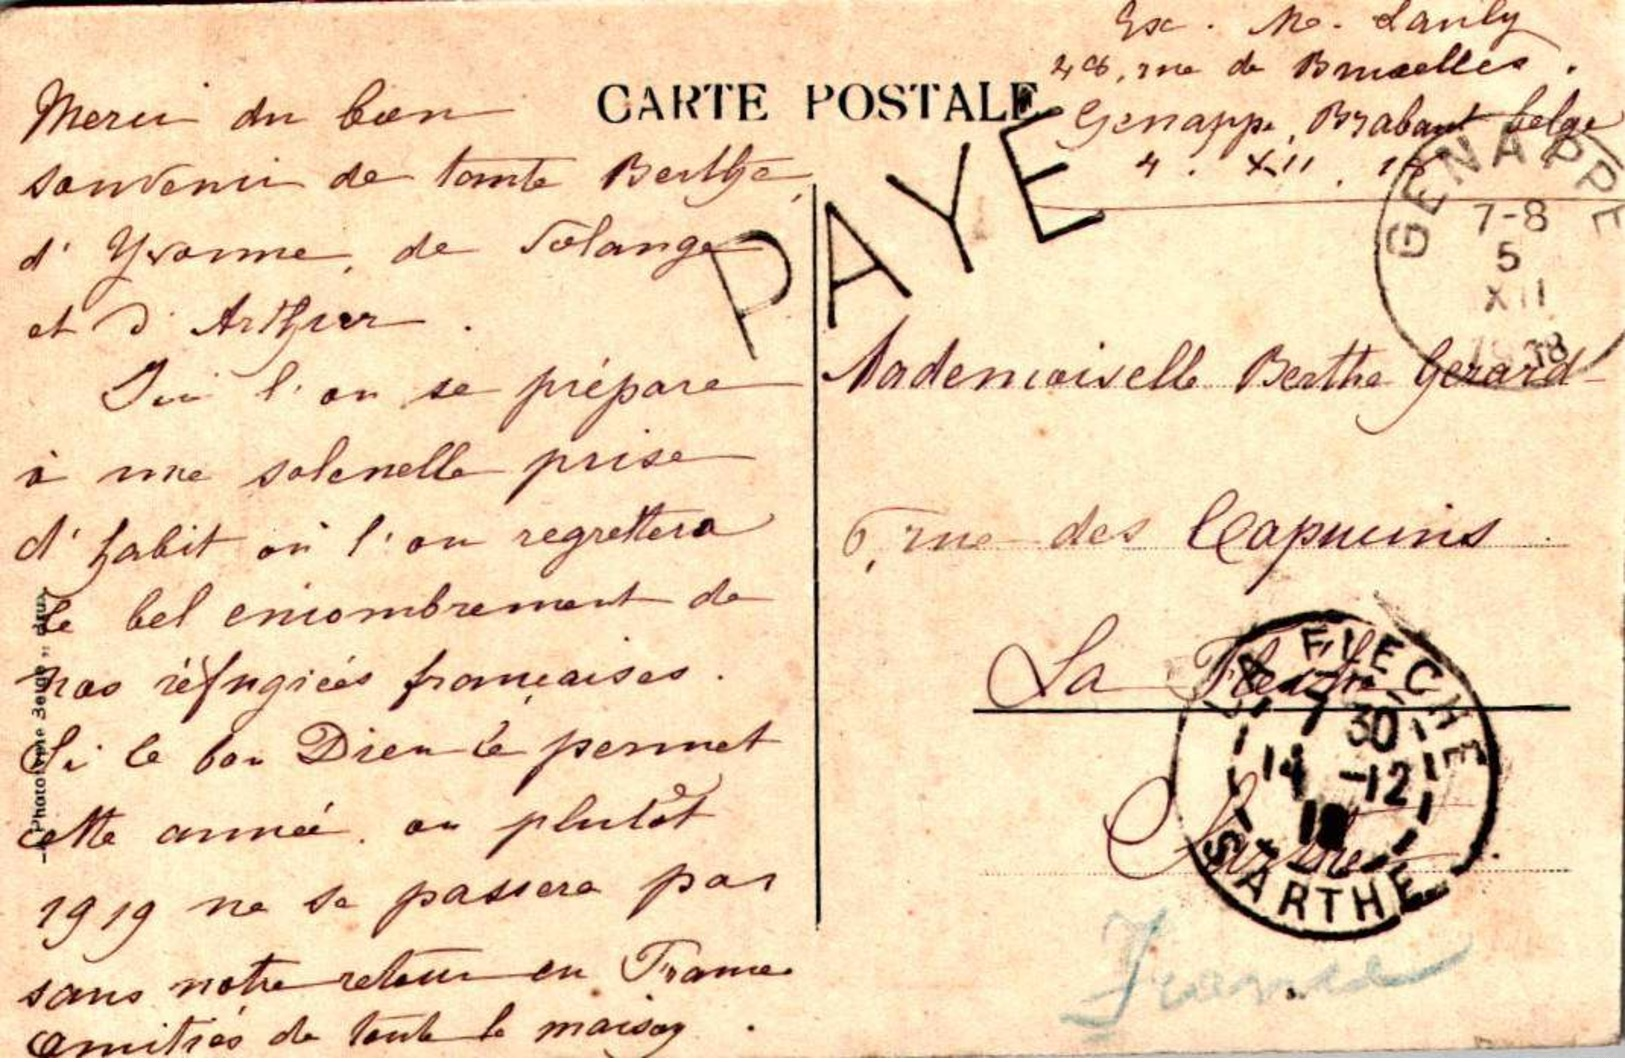 Merci du bon
souvenir de tante Berthe,
d' Yvonne, de Solange
et d' Arthur.
Ici l'on se prépare
à une solenelle prise
d'habit où l'on regrettera
le bel encombrement de
nos réfugiées françaises.
Si le bon Dieu le permet
cette année ou plutôt
1919 ne se passera pas
sans notre retour en France
Amitiés de toute la maison.
Phototypie
CARTE POSTALE
Ex. M.
48, rue de Bruxelles.
Genappe, Brabant belge
4. XII. 18
PAYE
GENAPPE
7-8
5
XII
1918
Mademoiselle Berthe Gérard
6, rue des Capucins
La Flèche
Sarthe
LA FLECHE
7 30
14 -12
18
SARTHE